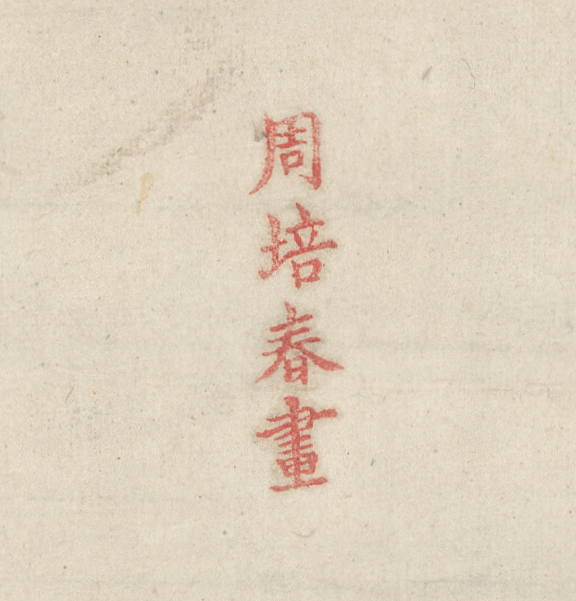 周培春畫